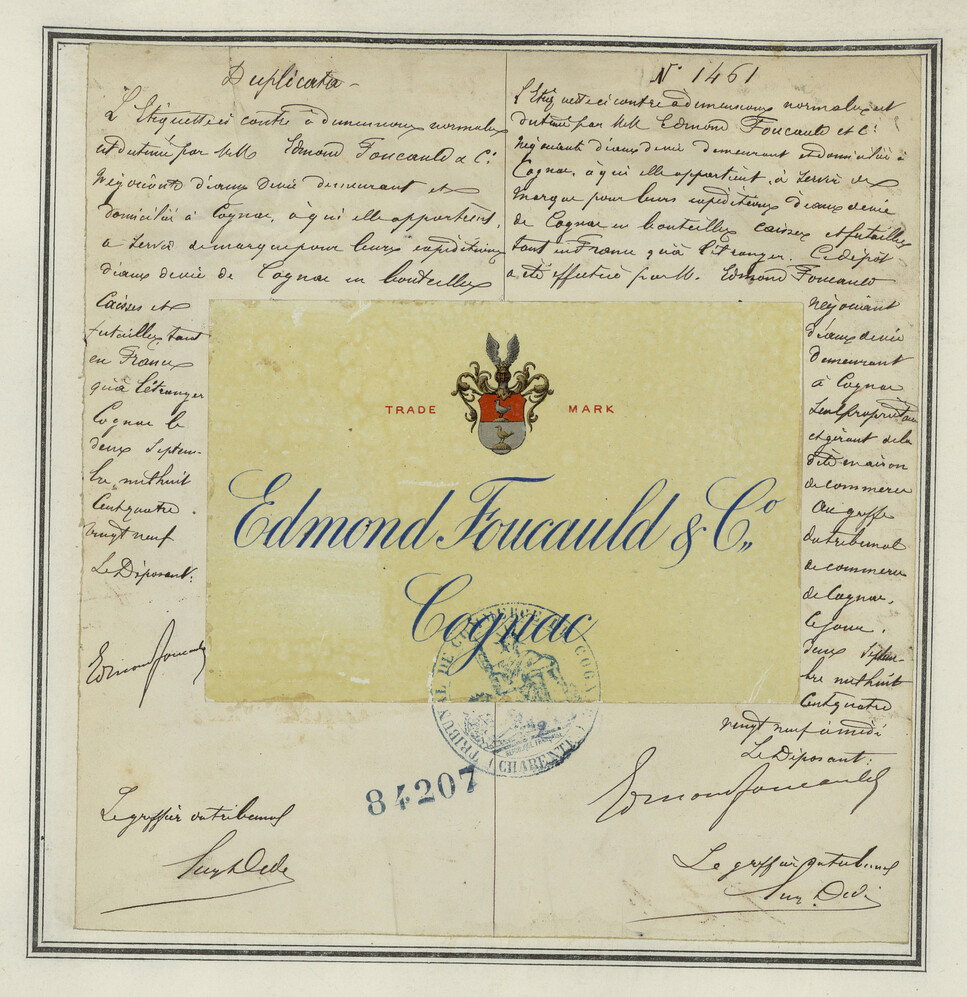 Duplicata
L'Etiquette ci contre à dimensions normales
est destinée par MM Edmond Foucauld & Cie
Négociants d'eaux de vie demeurant et
domiciliés à Cognac, à qui elle appartient,
à servir de marque pour leurs expéditions
d'eaux de vie de Cognac en bouteilles
Caisses et
futailles tant
en France
qu'à l'étranger
Cognac le
deux Septem-
bre mil huit
Cent quatre
vingt neuf
Le Déposant:
Edmond Foucauld
Le greffier du tribunal
N° 1461
L'Etiquette ci contre à dimensions normales est
destinée par MM. Edmond Foucauld et Cie
Négociants d'eaux de vie demeurant et domiciliés à
Cognac, à qui elle appartient, à servir de
marque pour leurs expéditions d'eaux de vie
de Cognac en bouteilles caisses et futailles
tant en France qu'à l'étranger. Ce dépôt
a été effectué par M. Edmond Foucauld
Négociant
d'eaux de vie
demeurant
à Cognac
seul propriétaire
et gérant de la
dite maison
de commerce
au greffe
du tribunal
de commerce
de Cognac,
ce jour,
deux Septem-
bre mil huit
Cent quatre
vingt neuf à midi
Le Déposant:
Edmond Foucauld
Le greffier du tribunal
TRADE MARK
Edmond Foucauld & Co
Cognac
TRIBUNAL DE COMMERCE DE COGNAC
(CHARENTE)
84207